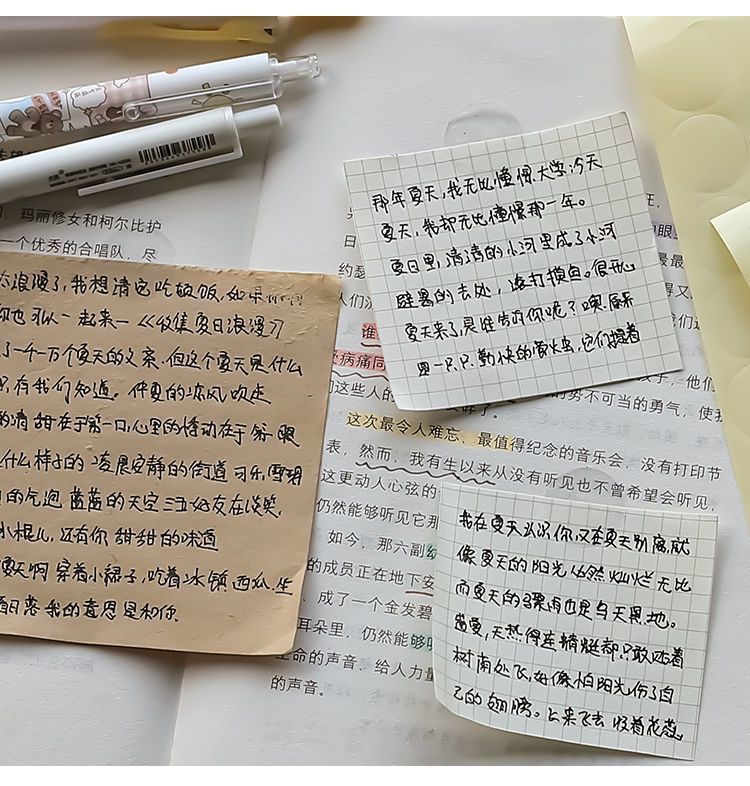 玛丽修女和柯尔比护
一个优秀的合唱队，尽
太浪漫了，我想请它吃顿饭，如果
你也可以一起来一《收集夏日浪漫》
了一千一万个夏天的文案，但这个夏天是什么
，有我们知道。仲夏的凉风吹走
的清甜在于第一口，心里的悸动在于第一眼
什么样子的 凌晨安静的街道 可乐 雪碧
的气泡 蓝蓝的天空 三五好友在谈笑，
小棍儿，还有你 甜甜的味道
夏天啊 穿着小裙子，吃着冰镇西瓜 坐
看日落 我的意思是和你.
那年夏天，我无比憧憬大学；今天
夏天，我却无比憧憬那一年。
夏日里，清清的小河里成了小河
避暑的去处，
夏天来了，是谁告诉你呢？噢，原来
是一只只勤快的萤火虫，它们提着
人们
谁
病痛同
们这些人的
的势不可当的勇气，使我
这次最令人难忘、最值得纪念的音乐会，没有打印节
表，然而，我有生以来从没有听见也不曾希望会听见，
这更动人心弦的
仍然能够听见它那
如今，那六副
的成员正在地下安
成了一个金发碧
耳朵里，仍然能够听
生命的声音、给人力量
的声音。
我在夏天认识你，又在夏天别离，就
像夏天的阳光 仍然灿烂无比
而夏天的骤雨也是与天具地。
盛夏，天热得连蜻蜓都只敢贴着
树荫处飞，好像怕阳光伤了自
己的翅膀。上来飞去 收着花蕊